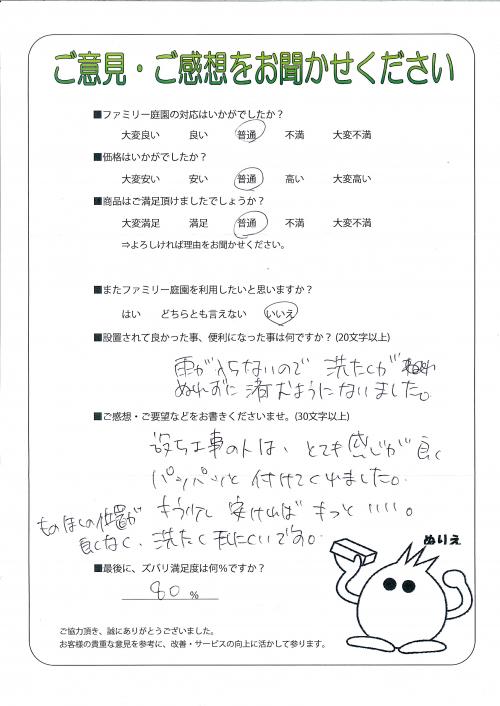 ご意見・ご感想をお聞かせください
■ファミリー庭園の対応はいかがでしたか？
大変良い 良い 普通 不満 大変不満
■価格はいかがでしたか？
大変安い 安い 普通 高い 大変高い
■商品はご満足頂けましたでしょうか？
大変満足 満足 普通 不満 大変不満
⇒よろしければ理由をお聞かせください。
■またファミリー庭園を利用したいと思いますか？
はい どちらとも言えない いいえ
■設置されて良かった事、便利になった事は何ですか？(20文字以上)
雨が入らないので 洗たくが
ぬれずに済むようになりました。
■ご感想・ご要望などをお書きくださいませ。(30文字以上)
設ち工事の人は、とても感じが良く
パンパンと 付けてくれました。
もう少し 安ければ もっと いいい。
ものほしの位置が
良くなく、洗たくしにくいです。
ぬりえ
■最後に、ズバリ満足度は何％ですか？
80 %
ご協力頂き、誠にありがとうございました。
お客様の貴重な意見を参考に、改善・サービスの向上に活かして参ります。